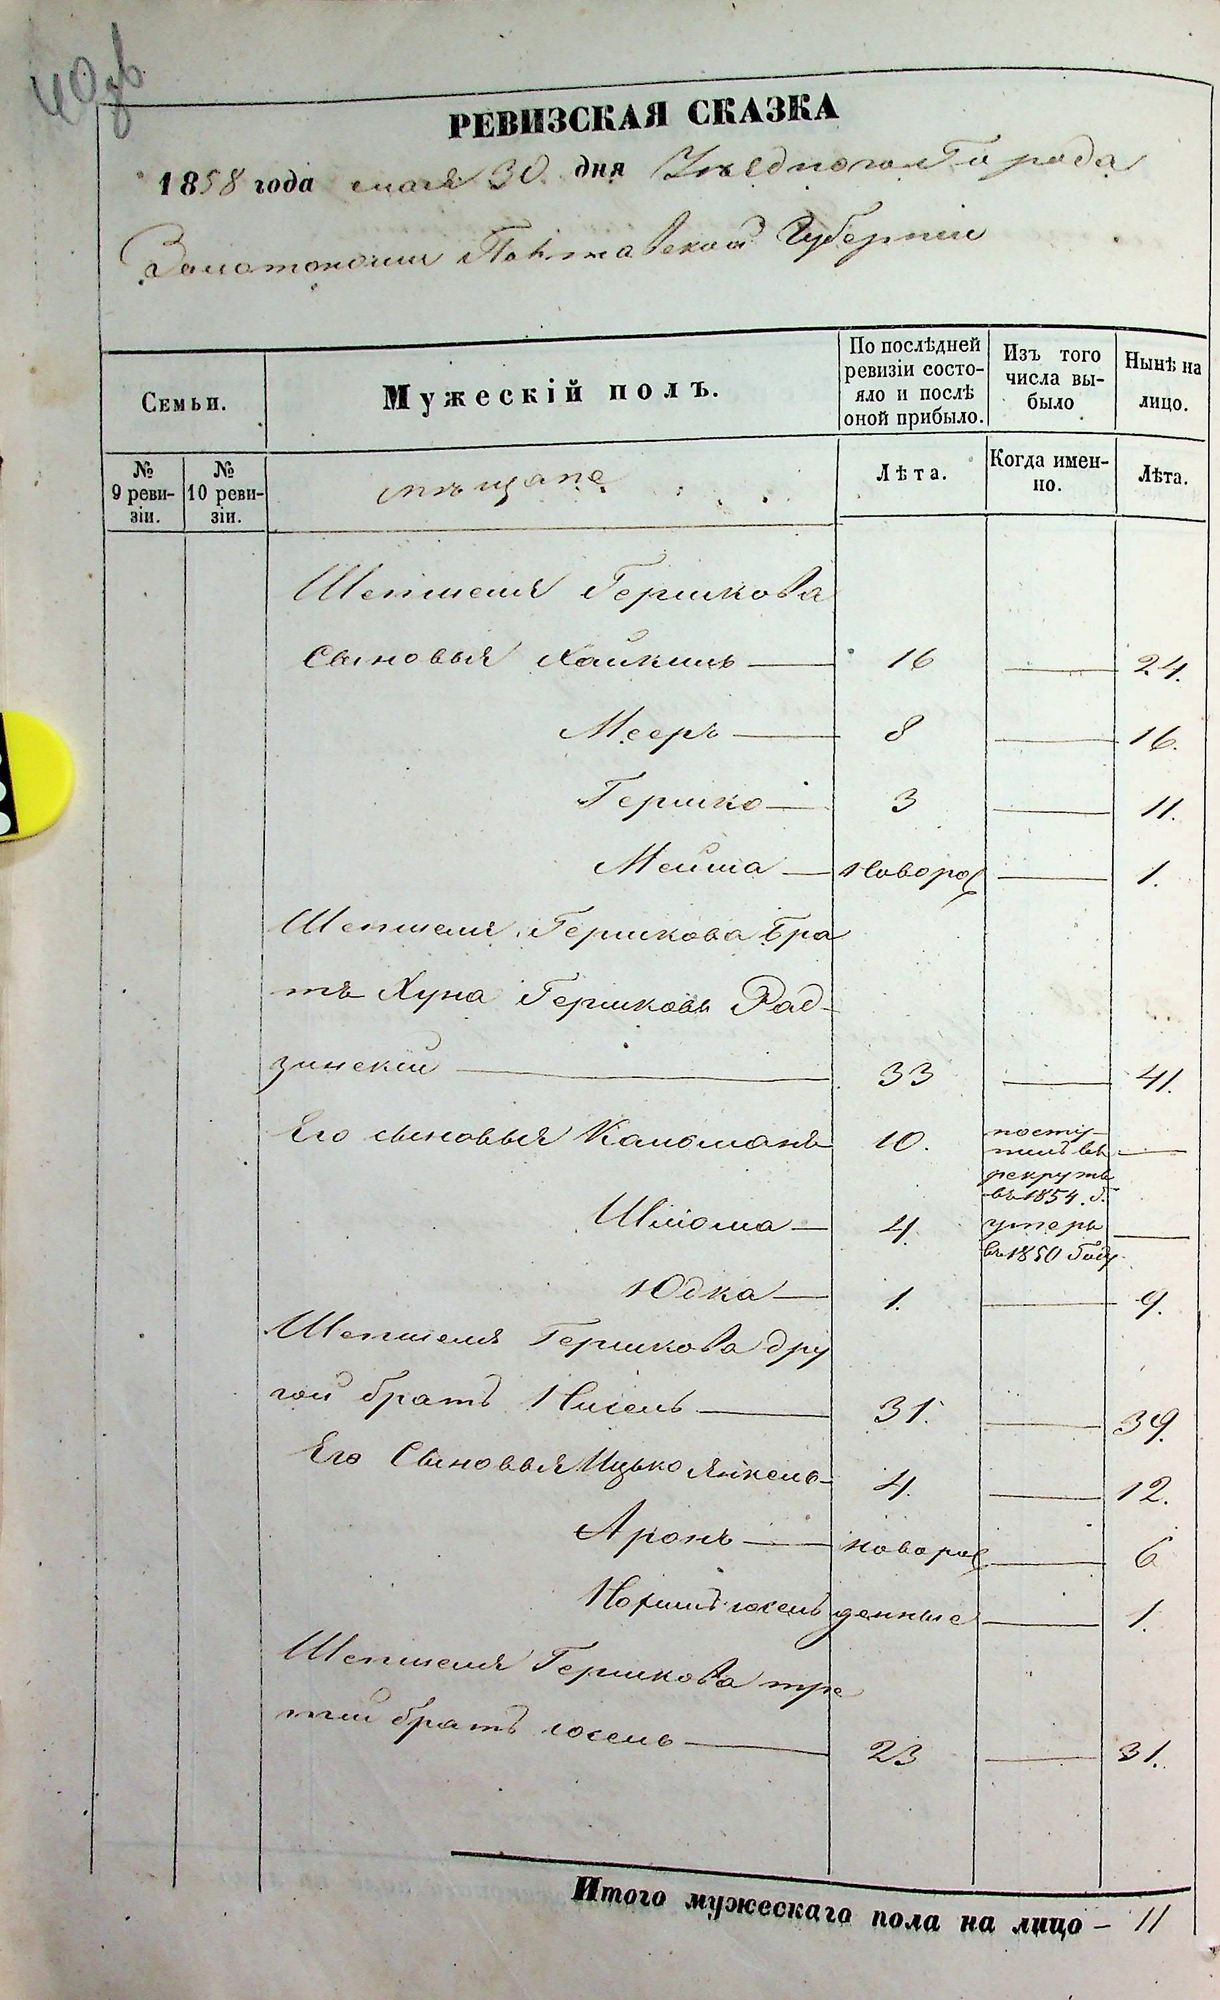 40 об
РЕВИЗСКАЯ СКАЗКА
1858 года мая 30 дня Уѣзднаго Города
Золотоноши Полтавской Губерніи
Семьи. Мужескій полъ. По послѣдней ревизіи состояло и послѣ оной прибыло. Изъ того числа выбыло Нынѣ на лицо.
№ 9 ревизіи. № 10 ревизіи. мѣщане Лѣта. Когда именно. Лѣта.
Шепшеля Гершкова
Сыновья Хаикель — 16 — 24.
Мееръ — 8 — 16.
Гершко — 3 — 11.
Мейша — Новорож — 1.
Шепшеля Гершкова бра
тъ Хуна Гершковъ Рад-
зинскій — 33 — 41.
Его сыновья Кальманъ 10. поступилъ въ рекруты въ 1854. г. —
Шліома — 4. умеръ въ 1850 году —
Юдка — 1. — 9.
Шепшеля Гершкова дру
гой братъ Нисель — 31. — 39.
Его Сыновья Ицько Янкель — 4. — 12.
Аронъ — новорож — 6
іосель денные — 1.
Шепшеля Гершкова тре
тий братъ іосель — 23 — 31.
Итого мужескаго пола на лицо — 11